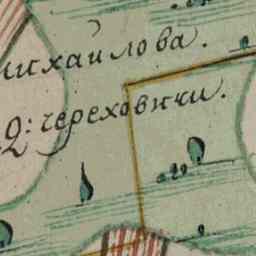 михайлова.
д: череховики.